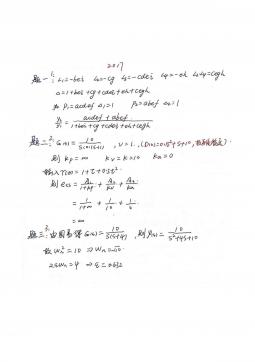 2017
题一 1: L₁=-bei L₂=-cg L₃=-cdei L₄=-oh L₁L₄=cegh
Δ=1+bei+cg+cdei+oh+cegh
则 P₁=acdef Δ₁=1 P₂=abef Δ₂=1
= acdef+abef / 1+bei+cg+cdei+oh+cegh
题二 2: G(s)= 10 / , υ=1. (D(s)=0.1s²+s+10, 故系统稳定).
则 Kp=∞ Kv=K=10 Ka=0
输入 r(t)=1+t+0.5t²
则 ess= A₁/1+Kp + A₂/Kv + A₃/Ka
= 1/1+∞ + 1/10 + 1/0
=∞
题三 3: 由图易得 G(s)= 10/s(s+4), 则 Φ(s)= 10/s²+4s+10
故 Wn²=10 ⇒ Wn=√10.
2ξWn=4 ⇒ ξ=0.632